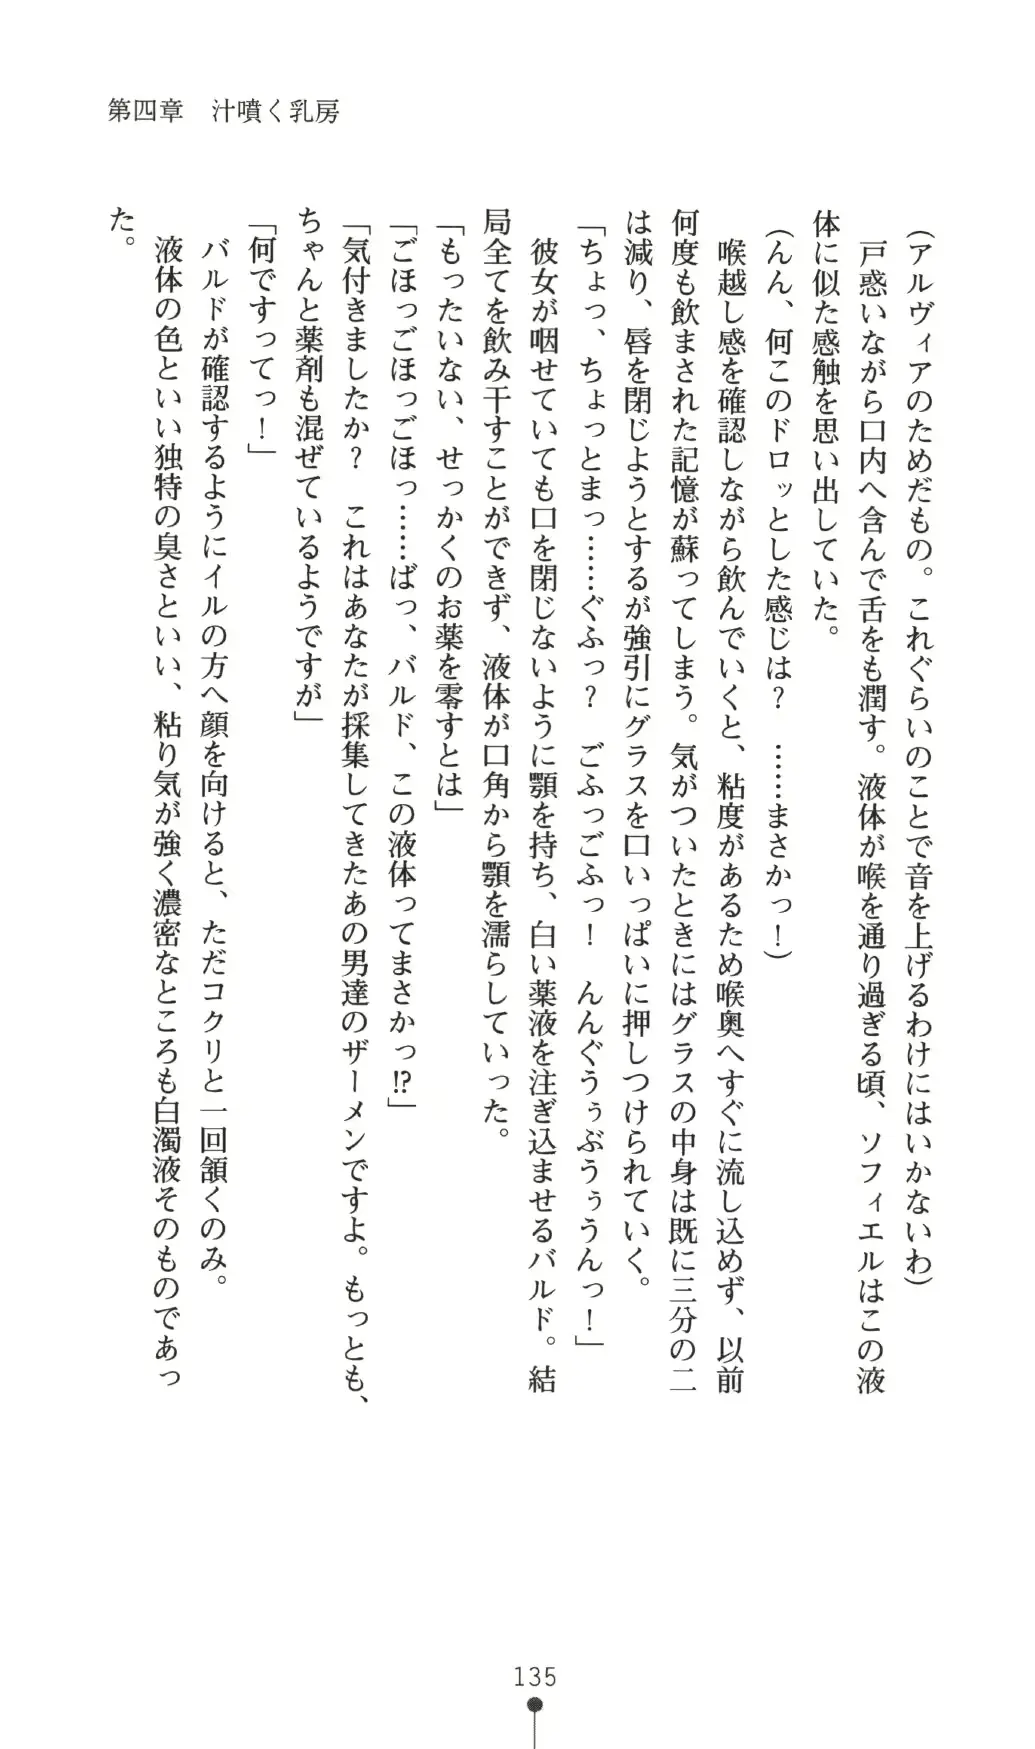 第四章　汁噴く乳房
(アルヴィアのためだもの。これぐらいのことで音を上げるわけにはいかないわ)
　戸惑いながら口内へ含んで舌をも潤す。液体が喉を通り過ぎる頃、ソフィエルはこの液
体に似た感触を思い出していた。
(んん、何このドロッとした感じは？　……まさかっ！)
　喉越し感を確認しながら飲んでいくと、粘度があるため喉奥へすぐに流し込めず、以前
何度も飲まされた記憶が蘇ってしまう。気がついたときにはグラスの中身は既に三分の二
は減り、唇を閉じようとするが強引にグラスを口いっぱいに押しつけられていく。
「ちょっ、ちょっとまっ……ぐふっ？　ごふっごふっ！　んんぐうぅぶうぅうんっ！」
　彼女が咽せていても口を閉じないように顎を持ち、白い薬液を注ぎ込ませるバルド。結
局全てを飲み干すことができず、液体が口角から顎を濡らしていった。
「もったいない、せっかくのお薬を零すとは」
「ごほっごほっごほっ……ばっ、バルド、この液体ってまさかっ!?」
「気付きましたか？　これはあなたが採集してきたあの男達のザーメンですよ。もっとも、
ちゃんと薬剤も混ぜているようですが」
「何ですってっ！」
　バルドが確認するようにイルの方へ顔を向けると、ただコクリと一回頷くのみ。
　液体の色といい独特の臭さといい、粘り気が強く濃密なところも白濁液そのものであっ
た。
135